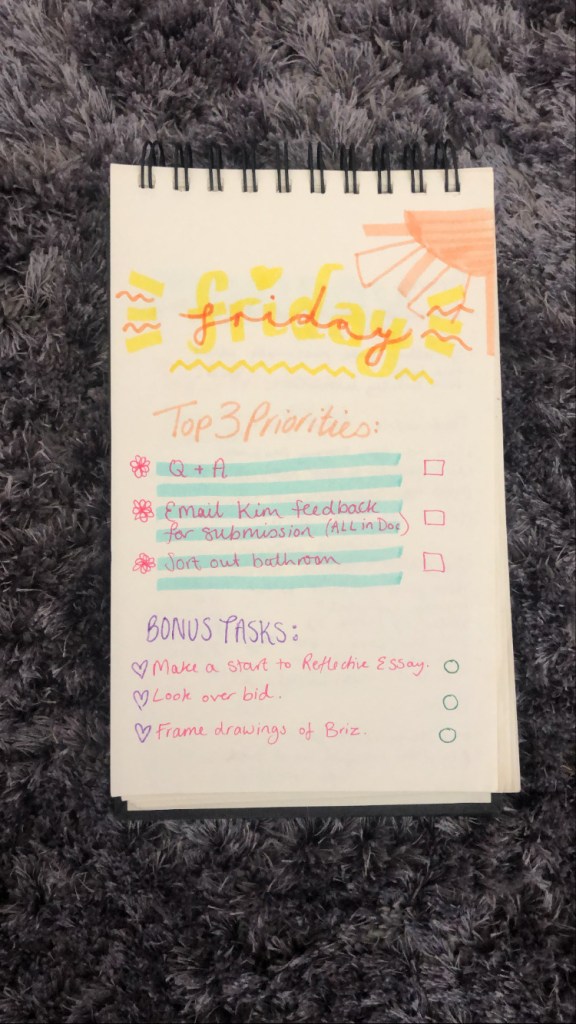 friday
Top 3 Priorities:
Q + A
Email Kim feedback
for submission (ALL in Doc)
Sort out bathroom
BONUS TASKS:
Make a start to Reflective Essay.
Look over bid.
Frame drawings of Briz.